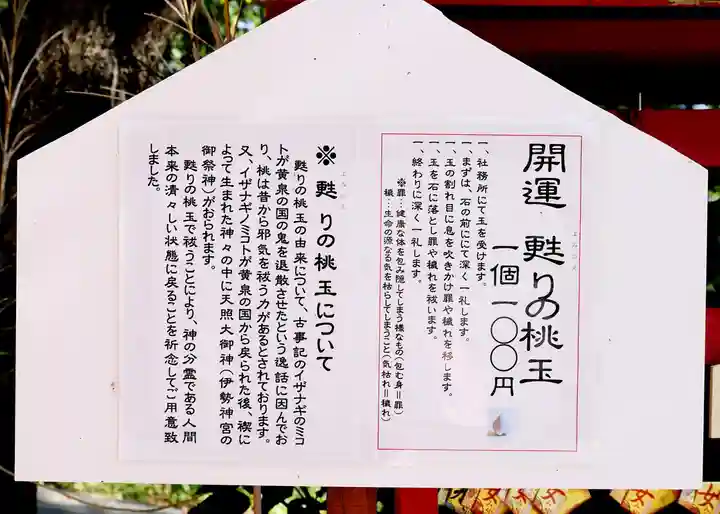 開運 甦りの桃玉
よみがえ
一個一〇〇円
一、社務所にて玉を受けます。
一、まずは、石の前にて深く一礼します。
一、玉の割れ目に息を吹きかけ罪や穢れを移します。
一、玉を石に落とし罪や穢れを祓います。
一、終わりに深く一礼します。
※罪…健康な体を包み隠してしまう様なもの(包む身=罪)
穢…生命の源なる気を枯らしてしまうこと(気枯れ=穢れ)
※ 甦りの桃玉について
よみがえ
甦りの桃玉の由来について、古事記のイザナギのミコ
トが黄泉の国の鬼を退散させたという逸話に因んでお
り、桃は昔から邪気を祓う力があるとされております。
又、イザナギノミコトが黄泉の国から戻られた後、禊に
よって生まれた神々の中に天照大御神(伊勢神宮の
御祭神)がおられます。
甦りの桃玉で祓うことにより、神の分霊である人間
本来の清々しい状態に戻ることを祈念してご用意致
しました。